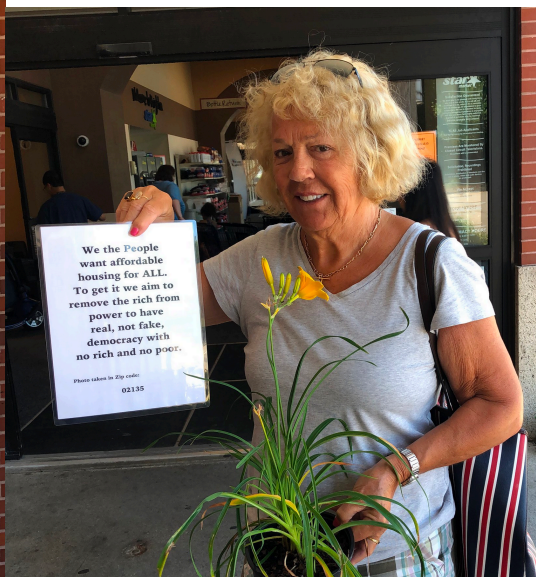 Bottle Return
star
We the People
want affordable
housing for ALL.
To get it we aim to
remove the rich from
power to have
real, not fake,
democracy with
no rich and no poor.
Photo taken in Zip code:
02135